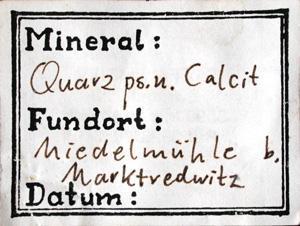 Mineral:
Quarz ps.n. Calcit
Fundort:
Miedelmühle b.
Marktredwitz
Datum: